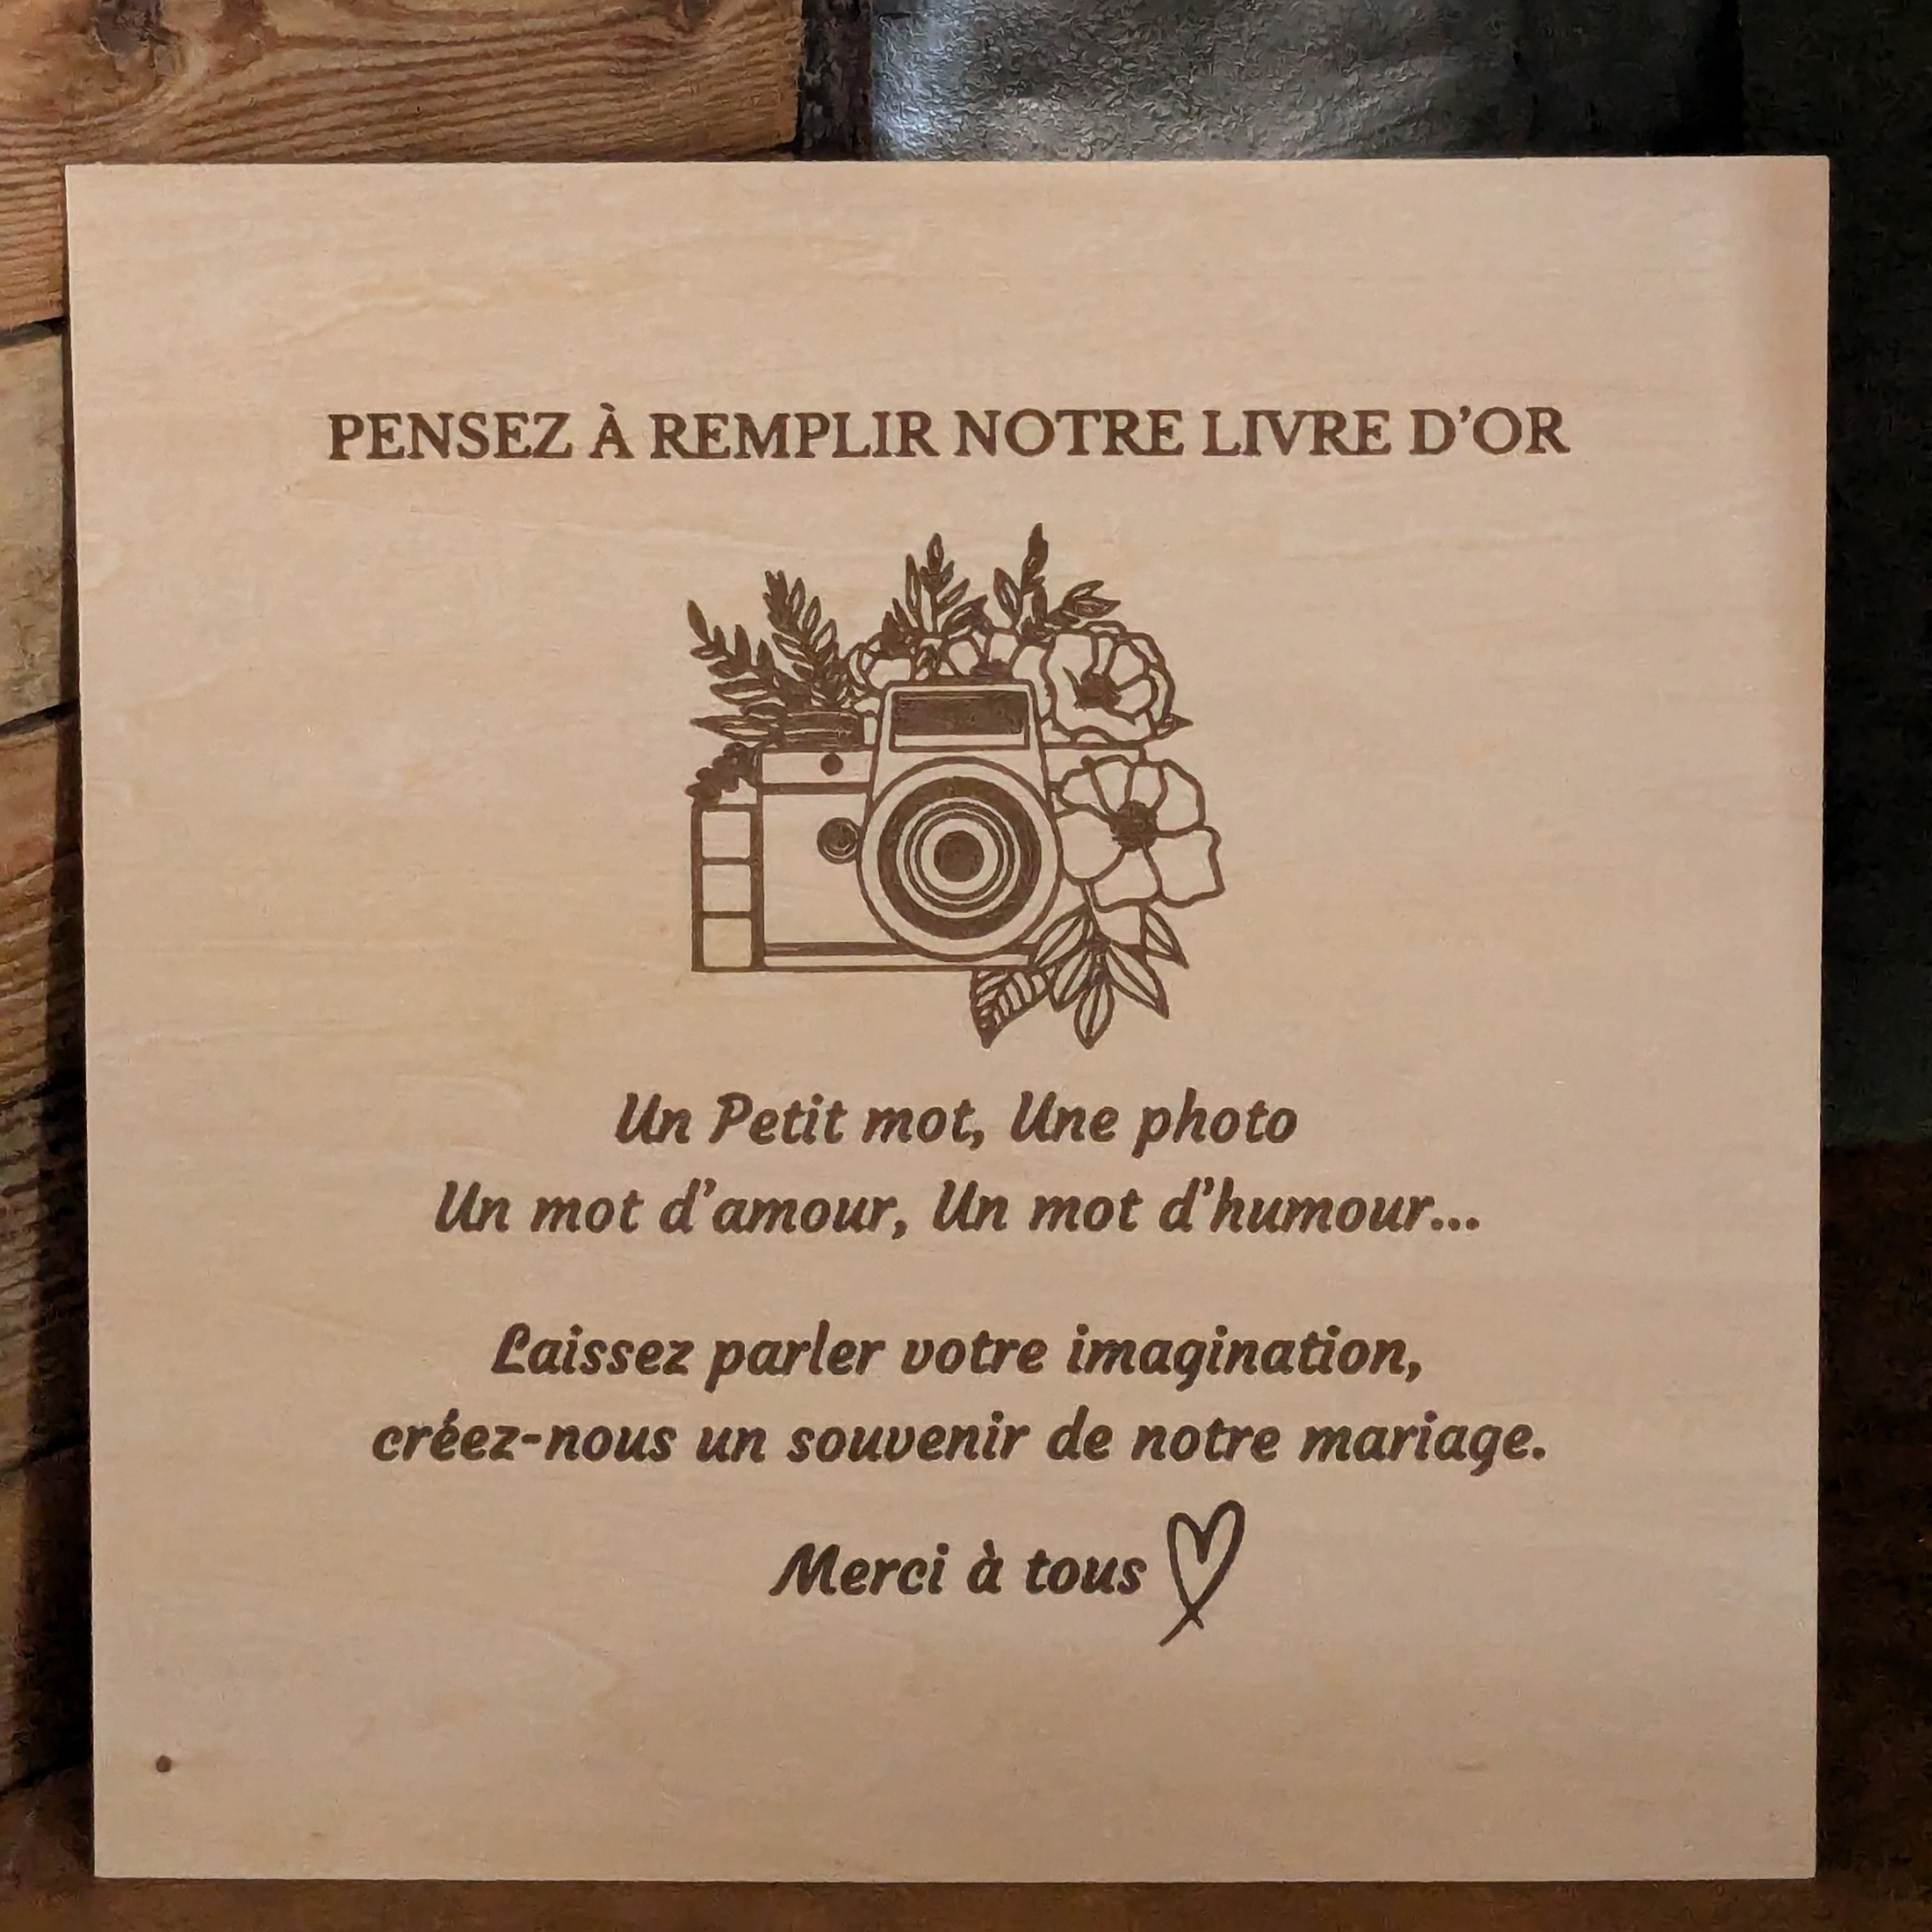 PENSEZ À REMPLIR NOTRE LIVRE D’OR
Un Petit mot, Une photo
Un mot d’amour, Un mot d’humour...
Laissez parler votre imagination,
créez-nous un souvenir de notre mariage.
Merci à tous